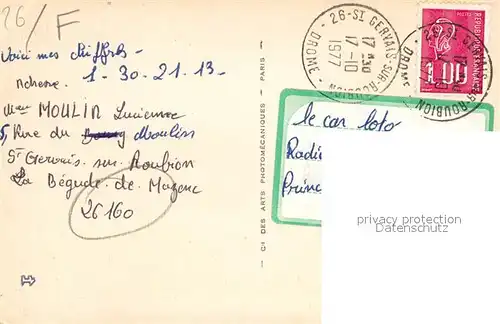 26/F
Voici mes chiffres
1-30-21-13-
Mme MOULIN Lucienne
5, Rue du Bourg Moulin
St Gervais sur Roubion
La Bégude de Mazenc
26160
Cie DES ARTS PHOTOMÉCANIQUES - PARIS
26-ST GERVAIS-SUR-ROUBION
17 H 30
17-10
1977
DROME
1,00
le car loto
Radi
Princ
privacy protection
Datenschutz